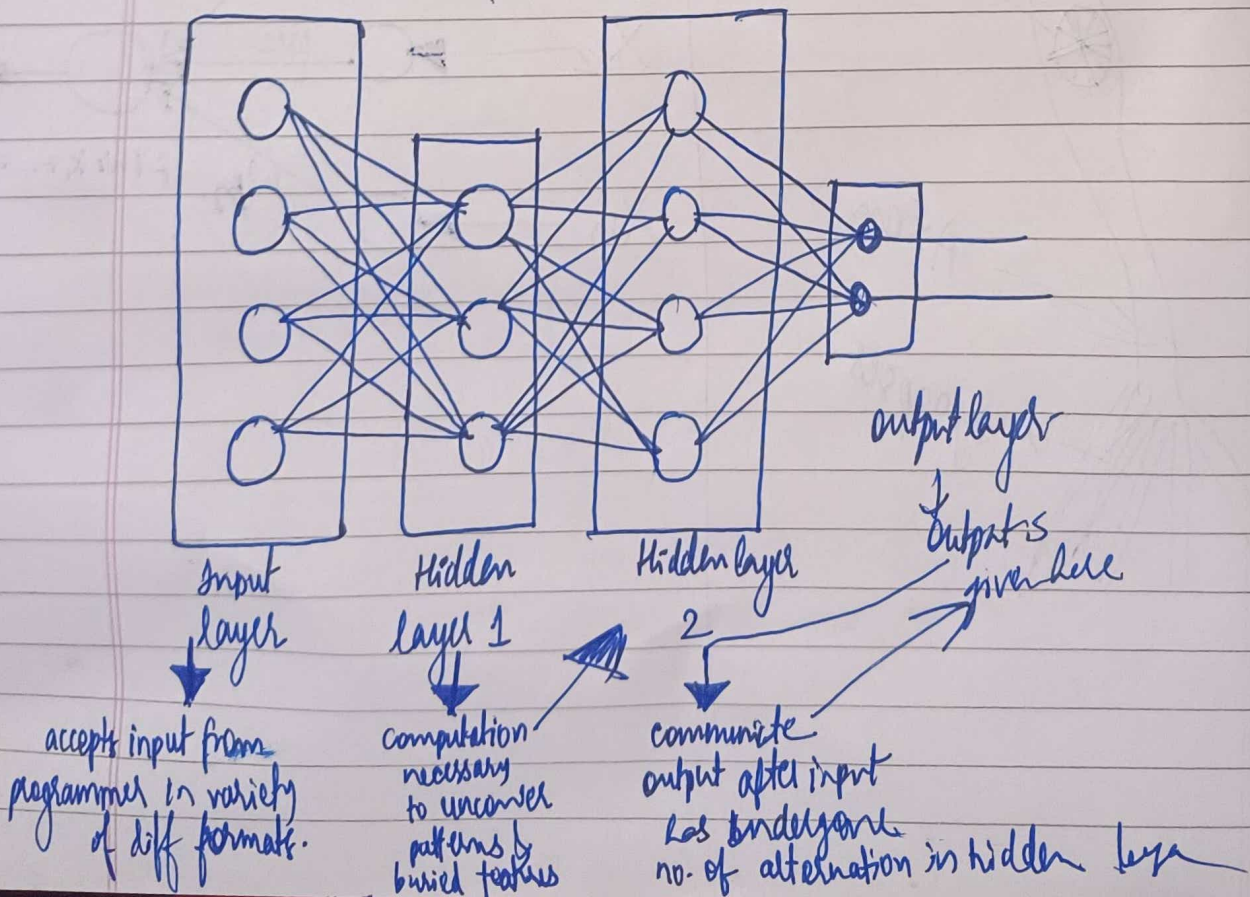 output layer
output is
given here
Input
layer
Hidden
layer 1
Hidden layer
2
accepts input from
programmer in variety
of diff formats.
computation
necessary
to uncover
patterns &
buried features
communicte
output after input
has undergone
no. of alternation in hidden layer